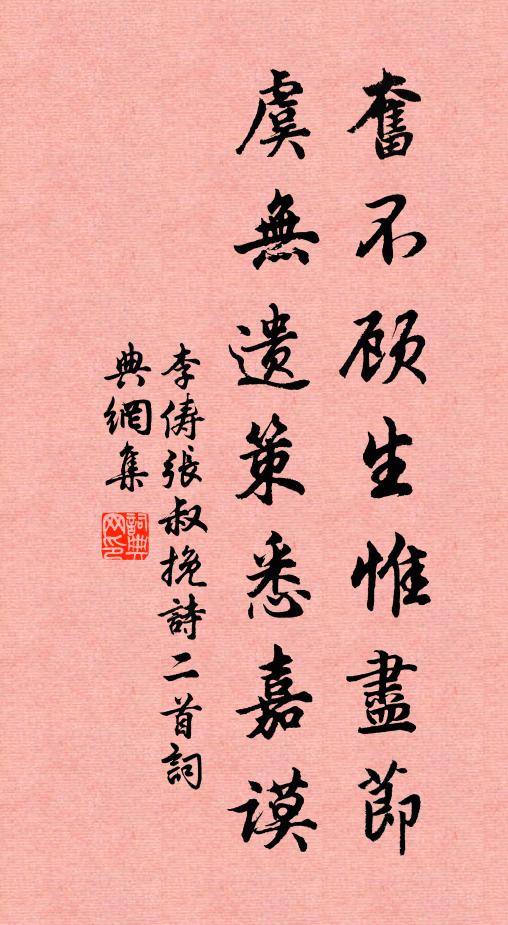 奮不顾生惟盡節
虞無遗策悉嘉謨
李俦張叔挽詩二首詞
典網集
詞典網印